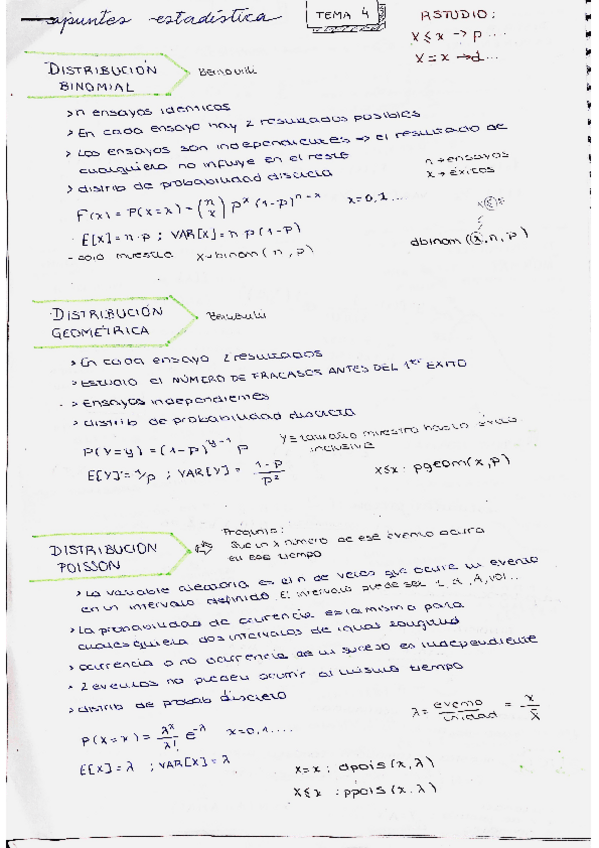 apuntes estadística
TEMA 4
RSTUDIO:
X≤x -> p ...
X=x -> d...
DISTRIBUCIÓN
BINOMIAL
Bernouilli
> n ensayos identicos
> En cada ensayo hay 2 resultados posibles
> Los ensayos son independientes => el resultado de
cualquiera no influye en el resto
> distrib de probabilidad discreta
n → ensayos
x → éxitos
F(x) = P(X=x) = (n x) p^x (1-p)^n-x x=0,1...
· E[X] = n·p ; VAR[X] = n p (1-p)
- solo muestra X~binom(n,p)
dbinom(x,n,p)
DISTRIBUCIÓN
GEOMÉTRICA
Bernouilli
> En cada ensayo 2 resultados
> ESTUDIO el NÚMERO DE FRACASOS ANTES DEL 1er EXITO
> Ensayos independientes
> distrib de probabilidad discreta
P(Y=y) = (1-p)^y-1 p
Y=tamaño muestra hasta éxito
inclusive
E[Y] = 1/p ; VAR[Y] = 1-p/p²
X≤x : pgeom(x,p)
DISTRIBUCIÓN
POISSON
Pregunta:
que un x número de ese evento ocurra
en ese tiempo
> La variable aleatoria es el n de veces que ocurre un evento
en un intervalo definido. El intervalo puede ser t, d, A, vol...
> La probabilidad de ocurrencia es la misma para
cualesquiera dos intervalos de igual longitud
> ocurrencia o no ocurrencia de un suceso es independiente
> 2 eventos no pueden ocurrir al mismo tiempo
> distrib de probab discreto
λ = evento/unidad = x/x̄
P(X=x) = λ^x/λ! e^-λ x=0,1....
E[X] = λ ; VAR[X] = λ
X=x : dpois(x,λ)
X≤x : ppois(x,λ)